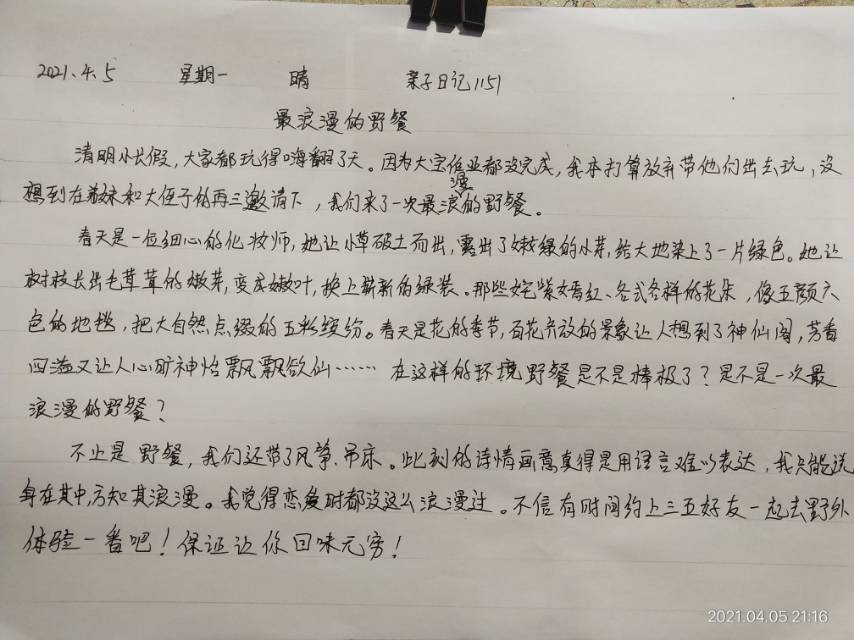 2021.4.5 星期一 晴 亲子日记1151
最浪漫的野餐
清明小长假，大家都玩得嗨翻了天。因为大宝作业都没完成，我本打算放弃带他们出去玩，没
想到在弟妹和大侄子的再三邀请下，我们来了一次最浪漫的野餐。
春天是一位细心的化妆师，她让小草破土而出，露出了嫩绿的小芽，给大地染上了一片绿色。她让
树枝长出毛茸茸的嫩芽，变成嫩叶，换上崭新的绿装。那些姹紫嫣红、各式各样的花朵，像五颜六
色的地毯，把大自然点缀的五彩缤纷。春天是花的季节，百花齐放的景象让人想到了神仙阁，芳香
四溢又让人心旷神怡飘飘欲仙…… 在这样的环境野餐是不是棒极了？是不是一次最
浪漫的野餐？
不止是野餐，我们还带了风筝、吊床。此刻的诗情画意真得是用语言难以表达，我只能说
身在其中，方知其浪漫。我觉得恋爱时都没这么浪漫过。不信有时间约上三五好友一起去野外
体验一番吧！保证让你回味无穷！
2021.04.05 21:16